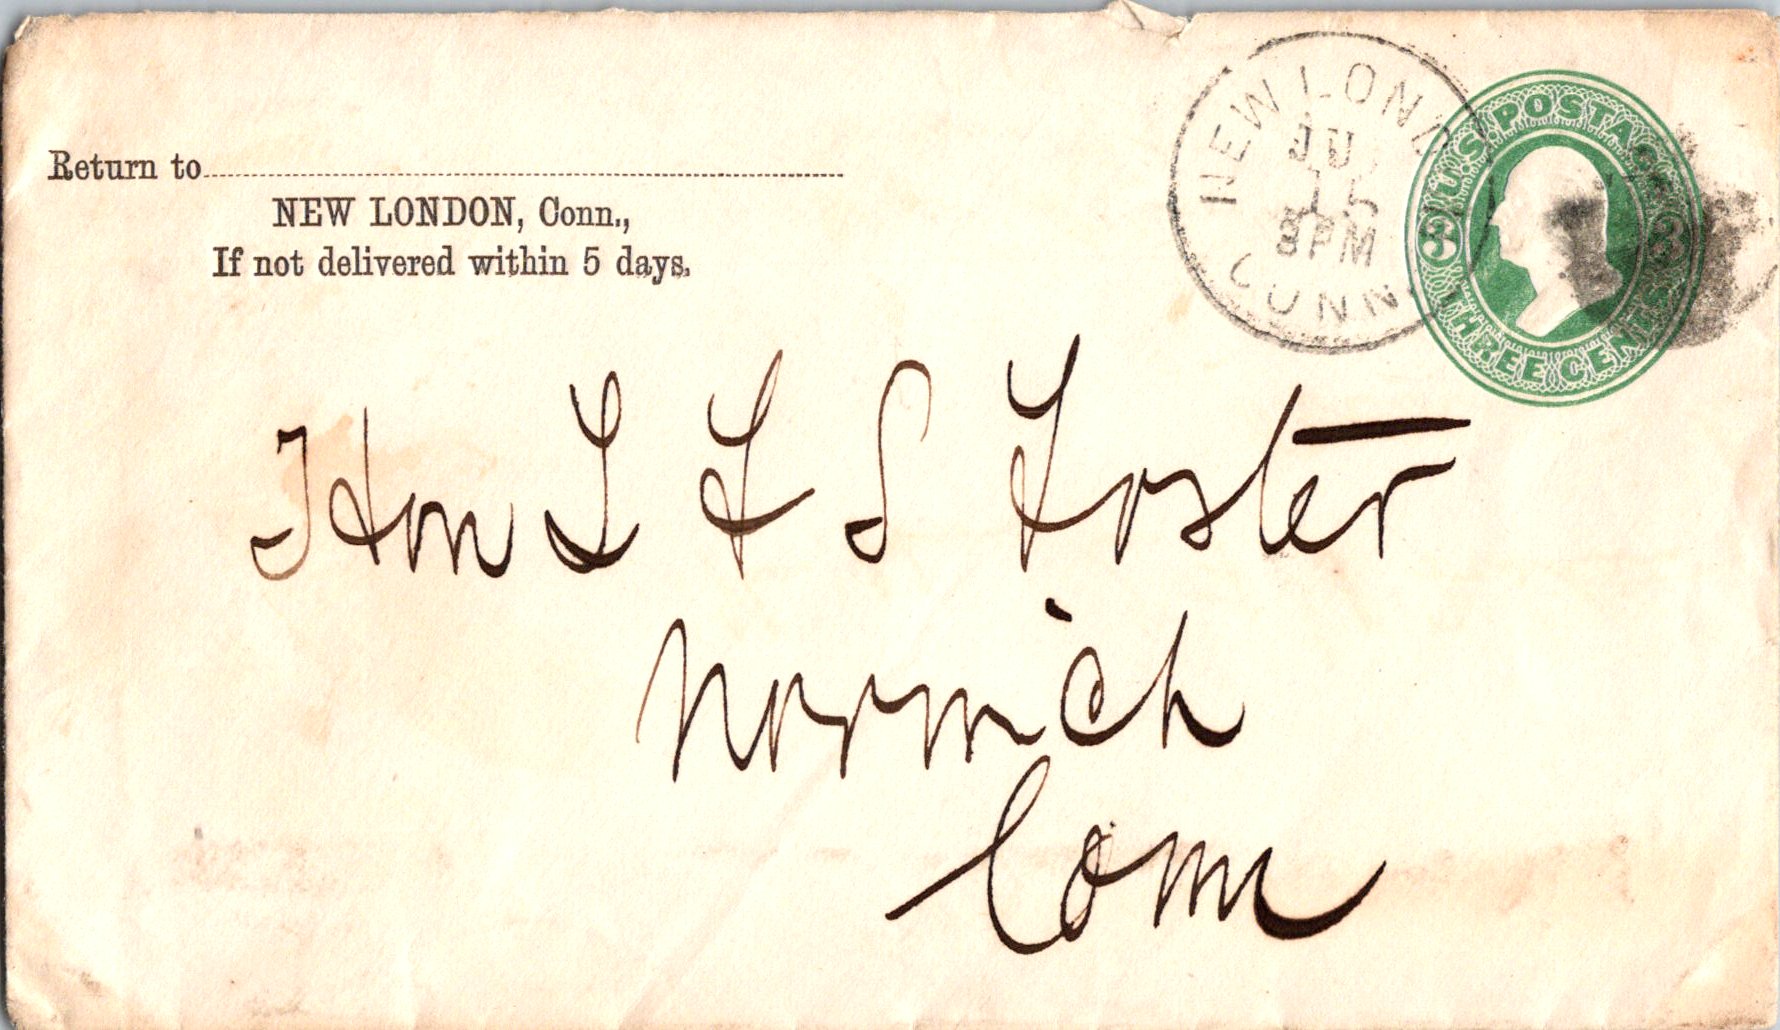 Return to
NEW LONDON, Conn.,
If not delivered within 5 days.
NEW LOND
JU
8 PM
CONN.
U.S. POSTAGE
3 3
THREE CENTS
Hon L F S Foster
Norwich
Conn